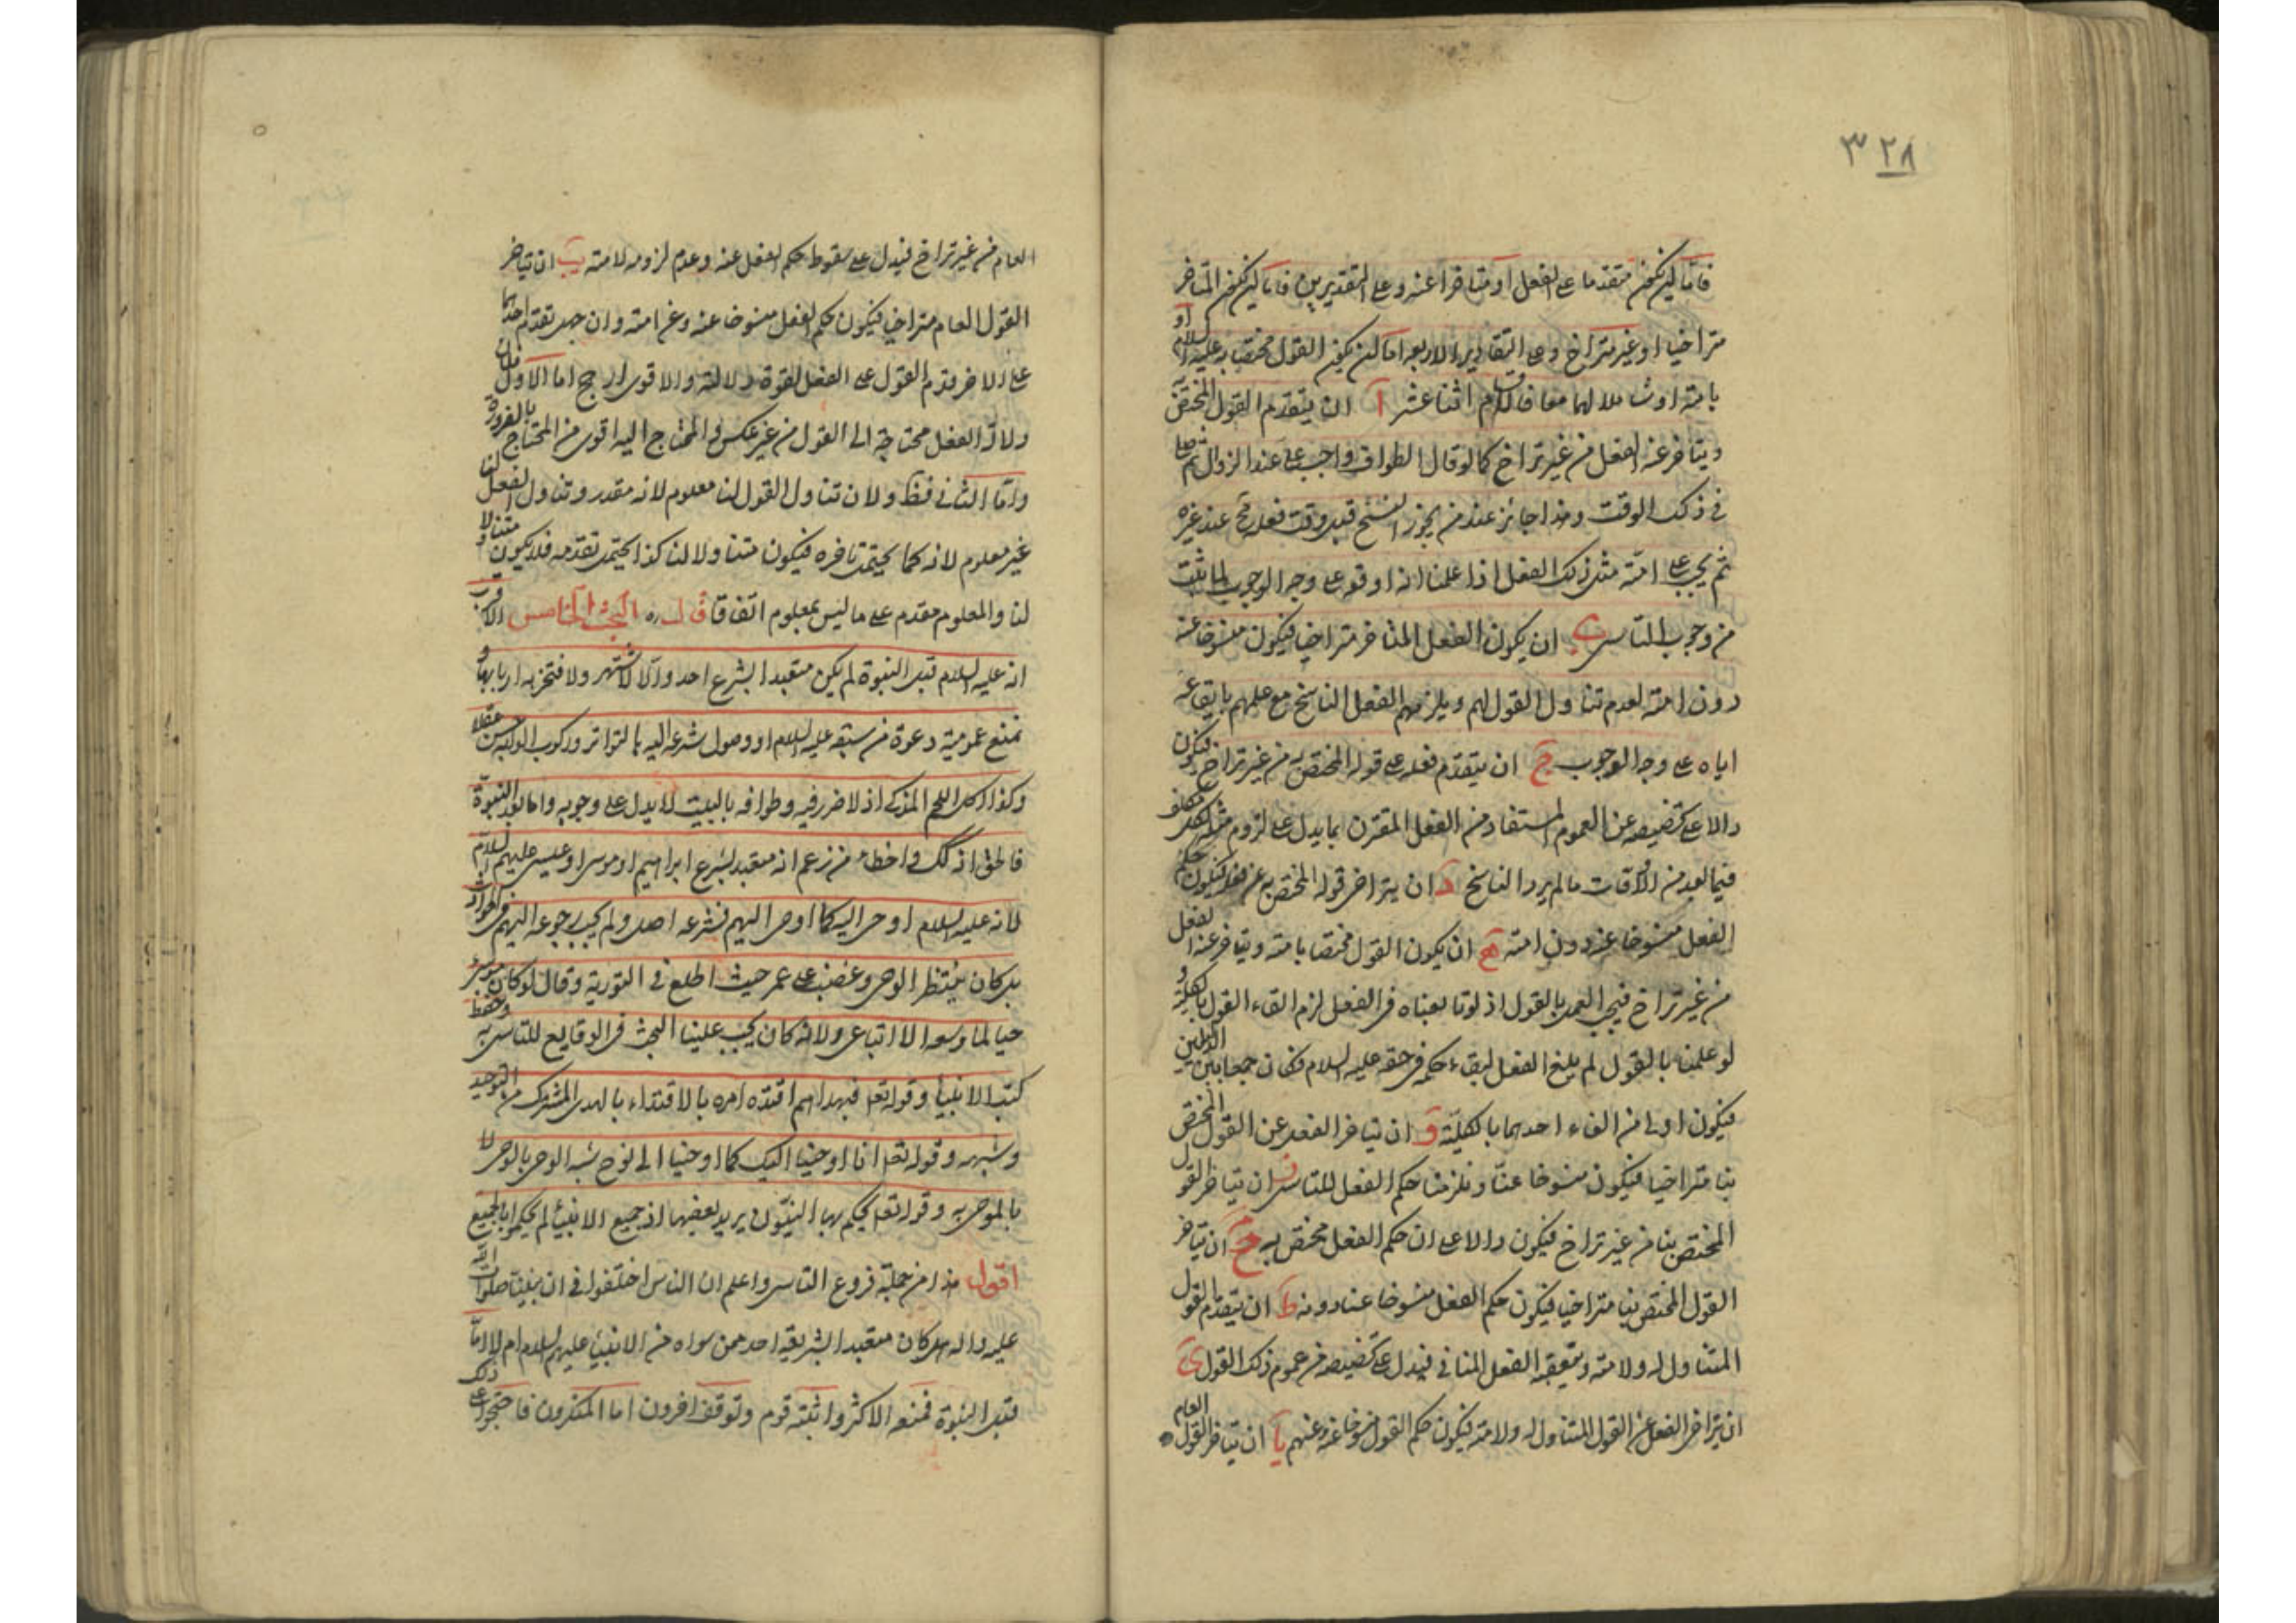 ٣٢٨
فاما ان يكون متقدما على الفعل او متاخرا عنه وعلى التقديرين فاما ان يكون المتاخر
متراخيا او غير متراخ وعلى التقادير الاربعة اما ان يكون القول مختصا به عليه السلام او
بامته او شاملا لهما معا فالاقسام اثنا عشر آ ان يتقدم القول المختص
ويتاخر عنه الفعل من غير تراخ كما لو قال الطواف واجب علي عند الزوال ثم
في ذلك الوقت وهذا جائز عند من يجوز النسخ قبل وقت فعله عند غيره
ثم يجب على امته مثل ذلك الفعل اذا علمنا انه اوقعه على وجه الوجوب لما ثبت
من وجوب التاسي ب ان يكون الفعل المتاخر متراخيا فيكون منسوخا عنه
دون امته لعدم تناول القول لهم ويلزمهم الفعل الناسخ مع علمهم بايقاعه
اياه على وجه الوجوب ج ان يتقدم فعله على قوله المختص به من غير تراخ فيكون
دالا على تخصيصه عن العموم المستفاد من الفعل المقترن بما يدل على لزوم مثله لكل مكلف
فيما بعد من الاوقات ما لم يرد الناسخ د ان يتراخى قوله المختص به عن فعله فيكون حكم
الفعل منسوخا عنه دون امته ه ان يكون القول مختصا بامته ويتاخر عنه الفعل
من غير تراخ فيجب العمل بالقول اذ لو تابعناه في الفعل لزم الغاء القول بالكلية و
لو علمنا بالقول لم يلغ الفعل لبقاء حكمه في حقه عليه السلام فكان جمعا بين الدليلين
فيكون اولى من الغاء احدهما بالكلية و ان يتاخر الفعل عن القول المختص
بنا متراخيا فيكون منسوخا عنا ويلزمنا حكم الفعل للتاسي ز ان يتاخر القول
المختص بنا من غير تراخ فيكون دالا على ان حكم الفعل مختص به ح ان يتاخر
القول المختص بنا متراخيا فيكون حكم الفعل منسوخا عنا دونه ط ان يتقدم القول
المتناول له ولامته ويتعقبه الفعل المنافي فيدل على تخصيصه من عموم ذلك القول ى
ان يتراخى الفعل عن القول المتناول له ولامته فيكون حكم القول منسوخا عنه وعنهم يا ان يتاخر القول العام
العام من غير تراخ فيدل على سقوط حكم الفعل عنه وعدم لزومه لامته يب ان يتاخر
القول العام متراخيا فيكون حكم الفعل منسوخا عنه وعن امته وان جهل تقدم احدهما
على الاخر قدم القول على الفعل لقوة دلالته والاقوى ارجح اما الاول فلان
دلالة الفعل محتاجة الى القول من غير عكس والمحتاج اليه اقوى من المحتاج بالضرورة
واما الثاني فظ ولان تناول القول لنا معلوم لانه مقدر وتناول الفعل لنا
غير معلوم لانه كما يحتمل تاخره فيكون متناولا لنا كذا يحتمل تقدمه فلا يكون متناولا
لنا والمعلوم مقدم على ما ليس بمعلوم اتفاقا قال ره البحث الخامس الاقرب
انه عليه السلام قبل النبوة لم يكن متعبدا بشرع احد والا لاشتهر ولافتخر به اربابها و
نمنع عمومية دعوة من سبقه عليه السلام او وصول شرعه اليه بالتواتر وركوب الدابة حسن عقلا
وكذا اكل اللحم المذكى اذ لا ضرر فيه وطوافه بالبيت لا يدل على وجوبه واما بعد النبوة
فالحق انه كك واخطا من زعم انه متعبد بشرع ابراهيم او موسى او عيسى عليهم السلام
لانه عليه السلام اوحى اليه كما اوحى اليهم فشرعه اصل ولم يجب رجوعه اليهم في الحوادث
بل كان ينتظر الوحي وغضب على عمر حيث اطلع في التورية وقال لو كان موسى
حيا لما وسعه الا اتباعي ولانه كان يجب علينا البحث في الوقايع للتاسي به وحفظ
كتب الانبياء وقوله تعا فبهداهم اقتده امره بالاقتداء بالهدى المشترك من التوحيد
وشبهه وقوله تعا انا اوحينا اليك كما اوحينا الى نوح شبه الوحي بالوحي لا
بالموحى به وقوله تعا يحكم بها النبيون يريد بعضها اذ جميع الانبياء لم يحكموا بالجميع
اقول هذا من جملة فروع التاسي واعلم ان الناس اختلفوا في ان نبينا صلوات الله
عليه واله هل كان متعبدا بشريعة احد ممن سواه من الانبياء عليهم السلام ام لا اما
قبل النبوة فمنعه الاكثر واثبته قوم وتوقف اخرون اما المنكرون فاحتجوا على ذلك